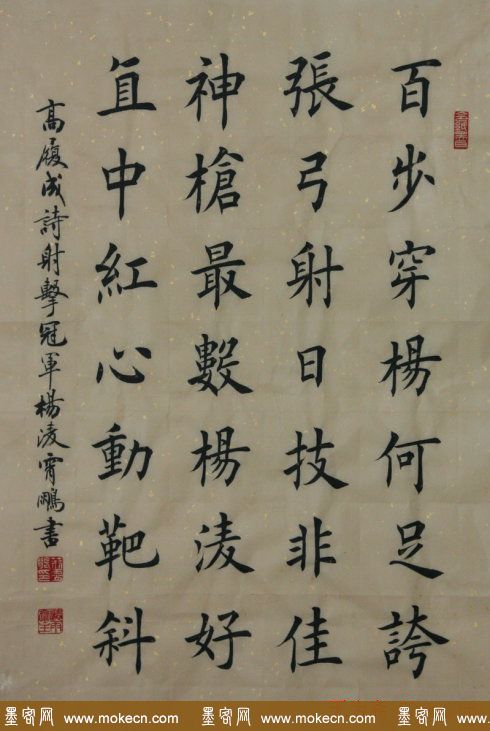 百步穿楊何足誇
張弓射日技非佳
神槍最數楊淩好
直中紅心動靶斜
高履成詩射擊冠軍楊淩宵鵬書
墨客网 www.mokecn.com 墨客网 www.mokecn.com 墨客网 www.mokecn.com